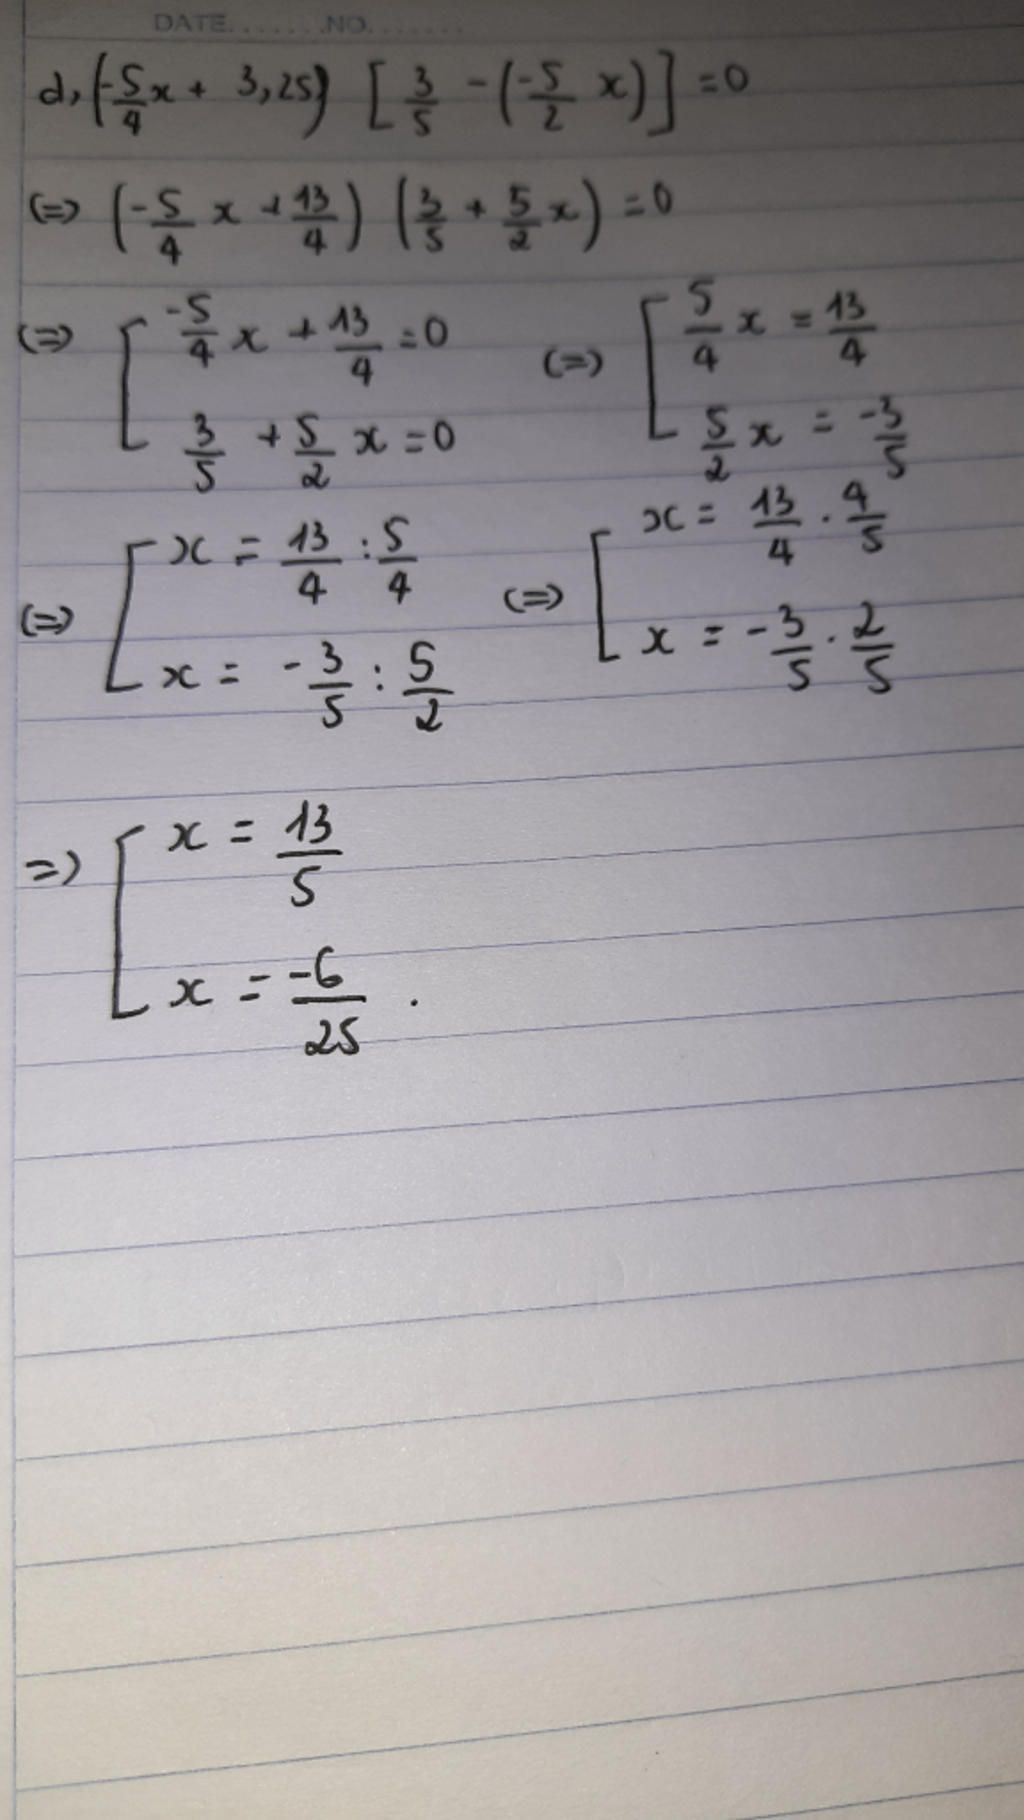 DATE.......NO.......
d, (-5/4 x + 3,25) [3/5 - (-5/2 x)] = 0
(=) (-5/4 x + 13/4) (3/5 + 5/2 x) = 0
(=) [ -5/4 x + 13/4 = 0
3/5 + 5/2 x = 0
(=) [ 5/4 x = 13/4
5/2 x = -3/5
(=) [ x = 13/4 : 5/4
x = -3/5 : 5/2
(=) [ x = 13/4 . 4/5
x = -3/5 . 2/5
=) [ x = 13/5
x = -6/25 .